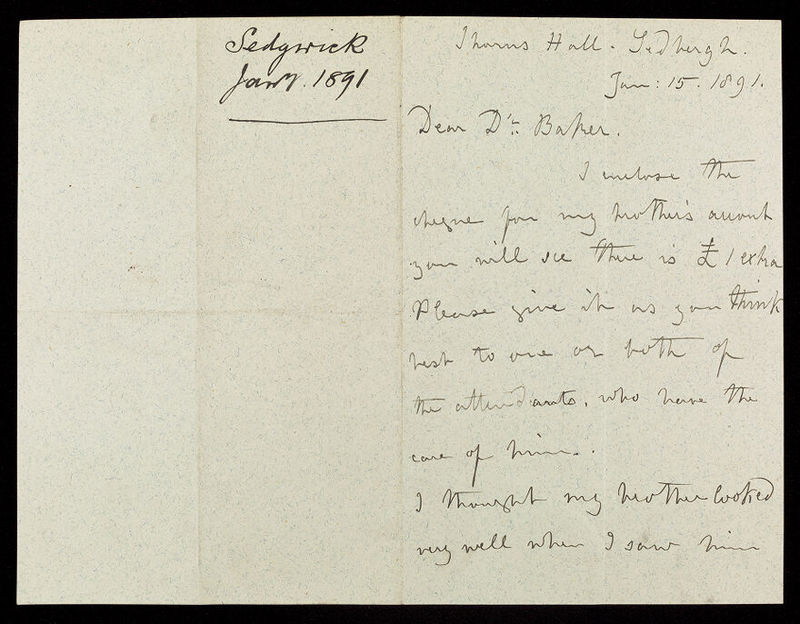 Sedgwick
Jany. 1891
Thorns Hall. Sedbergh.
Jan: 15. 1891.
Dear Dr. Baker.
I enclose the
cheque for my brother's account
you will see there is £1 extra
Please give it as you think
best to one or both of
the attendants, who have the
care of him.
I thought my brother looked
very well when I saw him